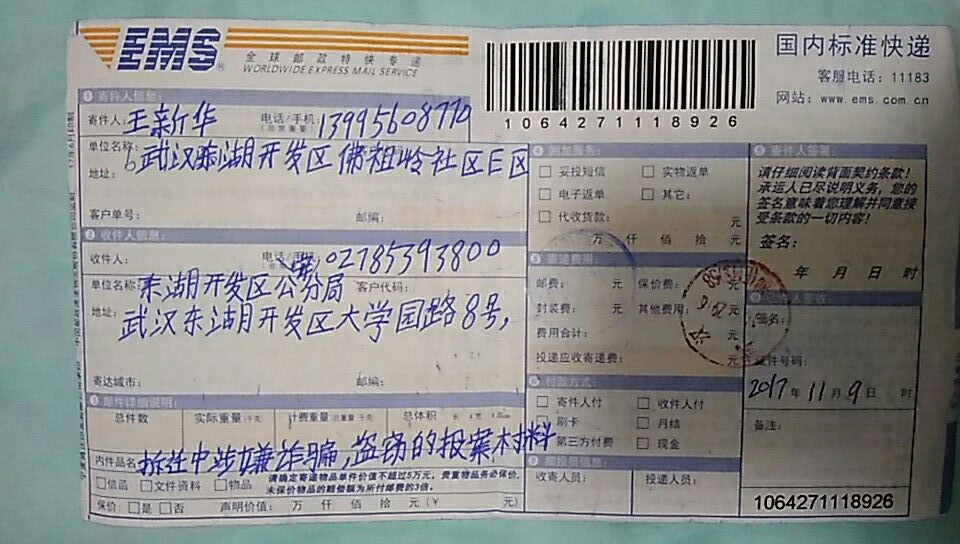 EMS 全球邮政特快专递
WORLDWIDE EXPRESS MAIL SERVICE
1064271118926
国内标准快递
客服电话：11183
网站：www.ems.com.cn
1 寄件人信息：
寄件人：王新华 电话/手机：13995608770
（非常重要）
单位名称：
地址：武汉东湖开发区佛祖岭社区E区
客户单号： 邮编：
2 收件人信息：
收件人： 电话/手机：02785393800
单位名称：东湖开发区公分局 客户代码：
地址：武汉东湖开发区大学园路8号，
寄达城市： 邮编：
邮件详细说明：
总件数 实际重量（千克） 计费重量（总重量 千克） 总体积 长 x 宽 x 高
内件品名 拆迁中涉嫌诈骗，盗窃的报案材料
□信函 □文件资料 □物品 请确定寄递物品单件价值不超过5万元，贵重物品务必保价，
未保价物品的赔偿额为所付邮费的3倍。
保价 □是 □否 声明价值： 万 仟 佰 拾 元（￥ 元）
4 附加服务：
□ 妥投短信 □ 实物返单
□ 电子返单 □ 其它：
□ 代收货款： 元
万 仟 佰 拾 元
5 寄递费用：
邮费： 元 保价费： 元
封装费： 元 其他费用： 元
费用合计： 元
投递应收寄递费： 元
6 付款方式：
□ 寄件人付 □ 收件人付
□ 刷卡 □ 月结
□ 第三方付费 □ 现金
收寄人员： 投递人员：
寄件人签署：
请仔细阅读背面契约条款！
承运人已尽说明义务，您的
签名意味着您理解并同意接
受条款的一切内容！
签名：
年 月 日 时
收件人签收：
签名：
证件号码：
2017年11月9日 时
备注：
1064271118926